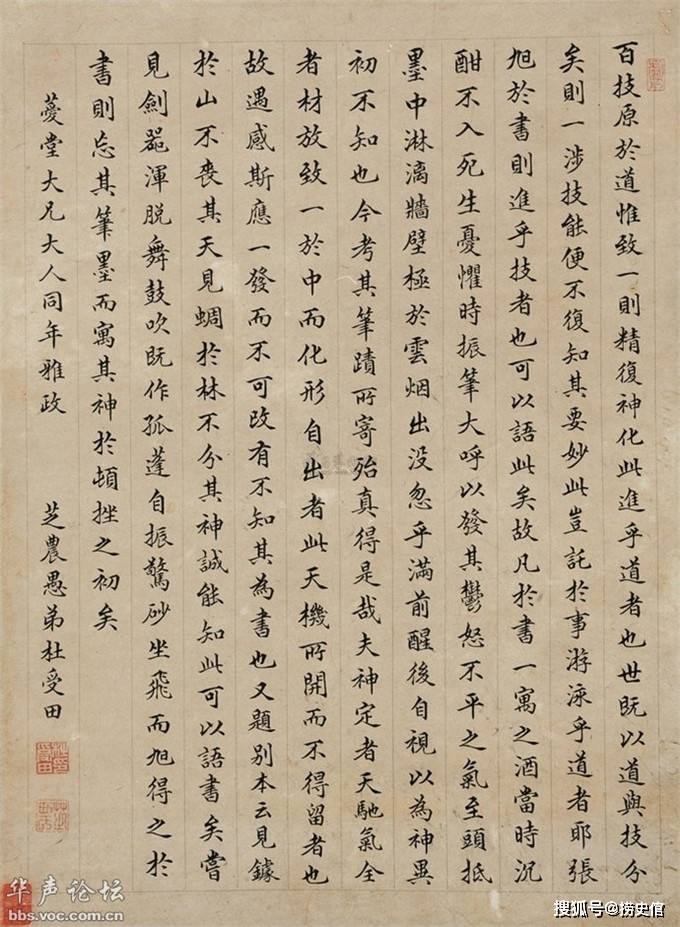 百技原於道惟致一則精復神化此進乎道者也世既以道與技分
矣則一涉技能便不復知其要妙此豈託於事游泳乎道者耶張
旭於書則進乎技者也可以語此矣故凡於書一寓之酒當時沉
酣不入死生憂懼時振筆大呼以發其鬱怒不平之氣至頭抵
墨中淋漓牆壁極於雲烟出没忽乎滿前醒後自視以為神異
初不知也今考其筆蹟所寄殆真得是哉夫神定者天馳氣全
者材放致一於中而化形自出者此天機所開而不得留者也
故遇感斯應一發而不可改有不知其為書也又題別本云見鐻
於山不喪其天見蜩於林不分其神誠能知此可以語書矣嘗
見劍器渾脱舞鼓吹既作孤蓬自振驚砂坐飛而旭得之於
書則忘其筆墨而寓其神於頓挫之初矣
薆堂大兄大人同年雅政
芝農愚弟杜受田
华声论坛
bbs.voc.com.cn
搜狐号@捞史馆